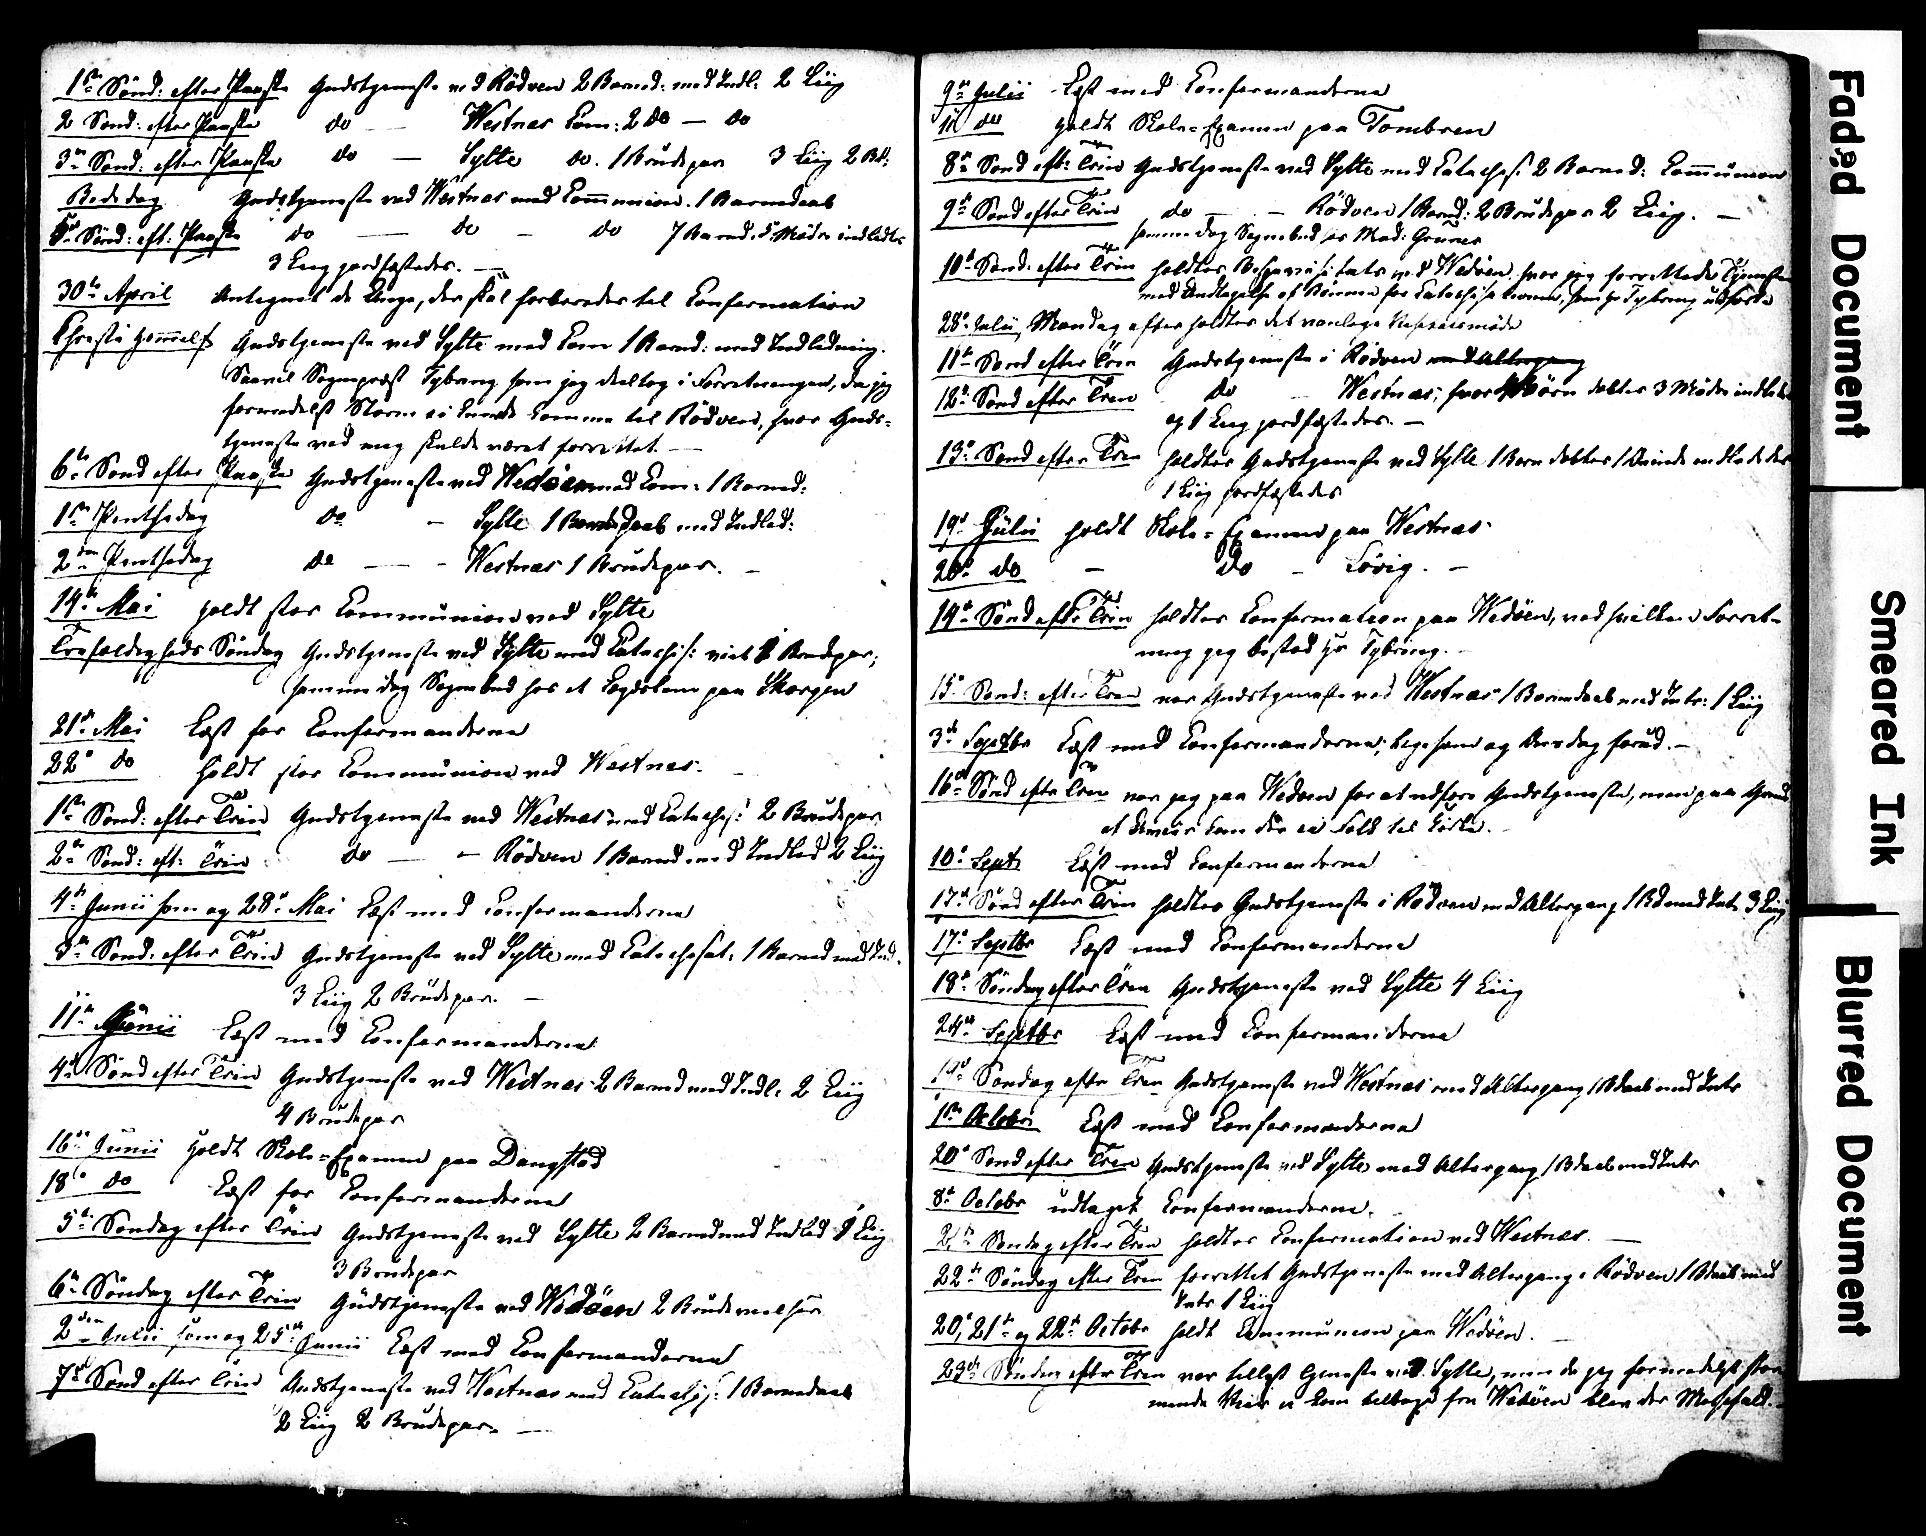 1ste Sönd: efter Paaske Gudstjeneste ved Rödven 2 Barnd: med Indl: 2 Liig
2 Sönd: efter Paaske do — Westnes Com: 2 do — do
3die Sönd: efter Paaske do — Sylte do. 1 Brudepar 3 Liig 2 Bd:
Bededag Gudstjeneste ved Westnes med Communion. 1 Barnedaab
5te Sönd: eft: Paaske do — do — do 7 Barnd. 5 Mödre indledte
3 Liig jordfæstedes. —
30te April Antegnet de Unge, der skal forberedes til Confermation
Christi Himmelf Gudstjeneste ved Sylte med Com 1 Barnd: med Indledning.
Sognepræst Tybring som jeg deeltog i Forretningen, da jeg
formedelst Storm ei kunde komme til Rödven, hvor Guds-
tjeneste ved mig skulde været forrettet —
6te Sönd efter Paaske Gudstjeneste ved Wedöen med Com: 1 Barned:
1ste Pintsedag do — Sylte 1 Barnedaab med Indled:
2den Pintsedag do — Westnes 1 Brudepar. —
14de Mai holdt stor Communion ved Sylte
Trefoldigheds Söndag Gudstjeneste ved Sylte med Catechis: viet 1 Brudepar;
samme dag Sognebud hos et Lægdslem paa Skorgen
21de Mai Læst for Confermanderne
22de do holdt stor Communion ved Westnes. —
1ste Sönd: efter Trin Gudstjeneste ved Westnes med Cateches: 2 Brudepar
2den Sönd: eft: Trin do — Rödven 1 Barned med Indled 2 Liig
4de Junii som og 28de Mai Læst med Confermanderne
3die Sönd: efter Trin Gudstjeneste ved Sylte med Catechesat: 1 Barned med Ind.
3 Liig 2 Brudepar. —
11te Junii Læst med Confermanderne
4de Sönd efter Trin Gudstjeneste ved Westnes 2 Barned med Indl: 2 Liig
4 Brudepar
16de Junii holdt Skole-Examen paa Daugstad
18de do Læst for Confermanderne
5te Söndag efter Trin Gudstjeneste ved Sylte 2 Barned med Indled 1 Liig
3 Brudepar
6te Söndag efter Trin Gudstjeneste ved Wedöen 2 Brudevielser
2den Julii som og 25de Junii Læst med Confermanderne
7de Sönd efter Trin Gudstjeneste ved Westnes med Catechis: 1 Barnedaab
2 Liig 2 Brudepar. —
9de Julii Læst med Confermanderne
11te do holdt Skole-Examen paa Tombren
8de Sönd eft: Trin Gudstjeneste ved Sylte med Cateches: 2 Barned: Communion
9de Sönd efter Trin do — Rödven 1 Barnd: 2 Brudepar 2 Liig. —
samme dag Sognebud
10de Sönd: efter Trin holdtes Bispevisitats ved Wedöen, hvor jeg forrettede Tjenesten
med Undtagelse af Bönnen for Catechisationen, som Hr Tybring udförte
28de Julii, Mandag efter holdtes det vanlige
11te Sönd efter Trin Gudstjeneste i Rödven med Altergang
12te Sönd efter Trin do — Westnes, hvor Börn döbtes 3 Mödre indledte
og 1 Liig jordfæstedes. —
13de Sönd efter Trin holdtes Gudstjeneste ved Sylte 1 Barn döbtes 1 Qvinde indledede
1 Liig jordfæstedes
19de Julii holdt Skole-Examen paa Westnes
20de do — do — Sövig. —
14de Sönd eft: Trin holdtes Confermation paa Wedöen, ved hvilken Forret-
ning jeg bistod Hr Tybring. —
15de Sönd: efter Trin var Gudstjeneste ved Westnes 1 Barnedaab med Intr: 1 Liig
3de Septbr Læst med Confermanderne; ligesom og Onsdag forud. —
16de Sönd eftr Trin var jeg paa Wedöen for at udföre Gudstjeneste, men paa Grund
af Uveir kom der ei Folk til Kirke. —
10de Septr Læst med Confermanderne
17de Sönd efter Trin holdtes Gudstjeneste i Rödven med Altergang 1 Bd med Intr 3 Liig
17de Septbr Læst med Confermanderne
18de Söndag efter Trin Gudstjeneste ved Sylte 4 Liig
24de Septbr Læst med Confermanderne
19de Söndag eftr Trin Gudstjeneste ved Westnes med Altergang 1 Bdaab med Intr
1ste Octobr Læst med Confermanderne
20de Sönd efter Trin Gudstjeneste ved Sylte med Altergang 1 Bdaab med Intr
8de Octobr udtaget Confermanderne.
21de Söndag efter Trin holdtes Confermation ved Westnes. —
22de Söndag efter Trin forrettet Gudstjeneste med Altergang i Rödven 1 Bdaab med
Intr 1 Liig
20, 21de og 22de Octobr holdt Communion paa Wedöen. —
23de Söndag eftr Trin var tillyst Tjeneste ved Sylte, men da jeg formedelst stor-
mende Veir ei kom tilbage fra Wedöen blev der Messefald. —
Faded Document
Smeared Ink
Blurred Document